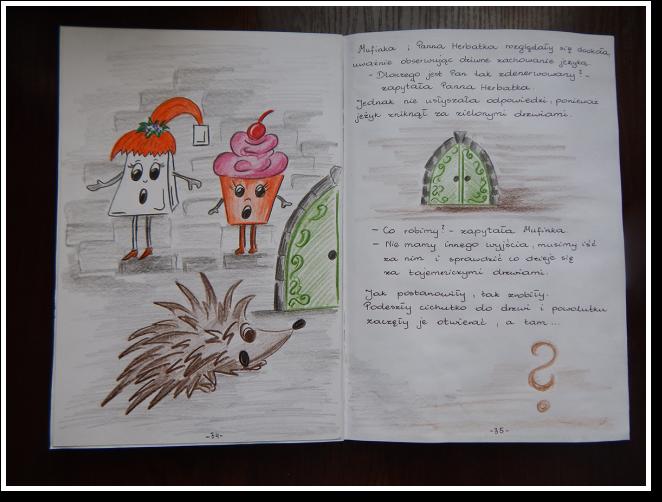 Mufinka i Panna Herbatka rozglądały się dookoła,
uważnie obserwując dziwne zachowanie jeżyka.
- Dlaczego jest Pan tak zdenerwowany? -
zapytała Panna Herbatka.
Jednak nie usłyszała odpowiedzi, ponieważ
jeżyk zniknął za zielonymi drzwiami.
- Co robimy? - zapytała Mufinka.
- Nie mamy innego wyjścia, musimy iść
za nim i sprawdzić co dzieje się
za tajemniczymi drzwiami.
Jak postanowiły, tak zrobiły.
Podeszły cichutko do drzwi i powolutku
zaczęły je otwierać, a tam...
?
-34-
-35-